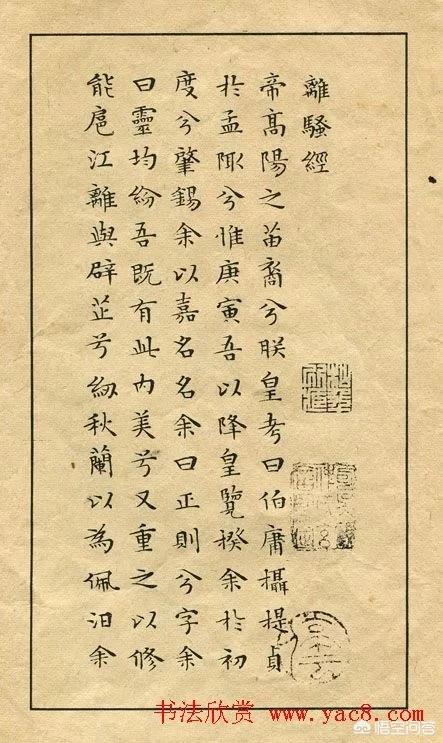 離騷經
帝高陽之苗裔兮朕皇考曰伯庸攝提貞
於孟陬兮惟庚寅吾以降皇覽揆余於初
度兮肇錫余以嘉名名余曰正則兮字余
曰靈均紛吾既有此內美兮又重之以修
能扈江離與辟芷兮紉秋蘭以為佩汨余
书法欣赏 www.yac8.com
悟空问答